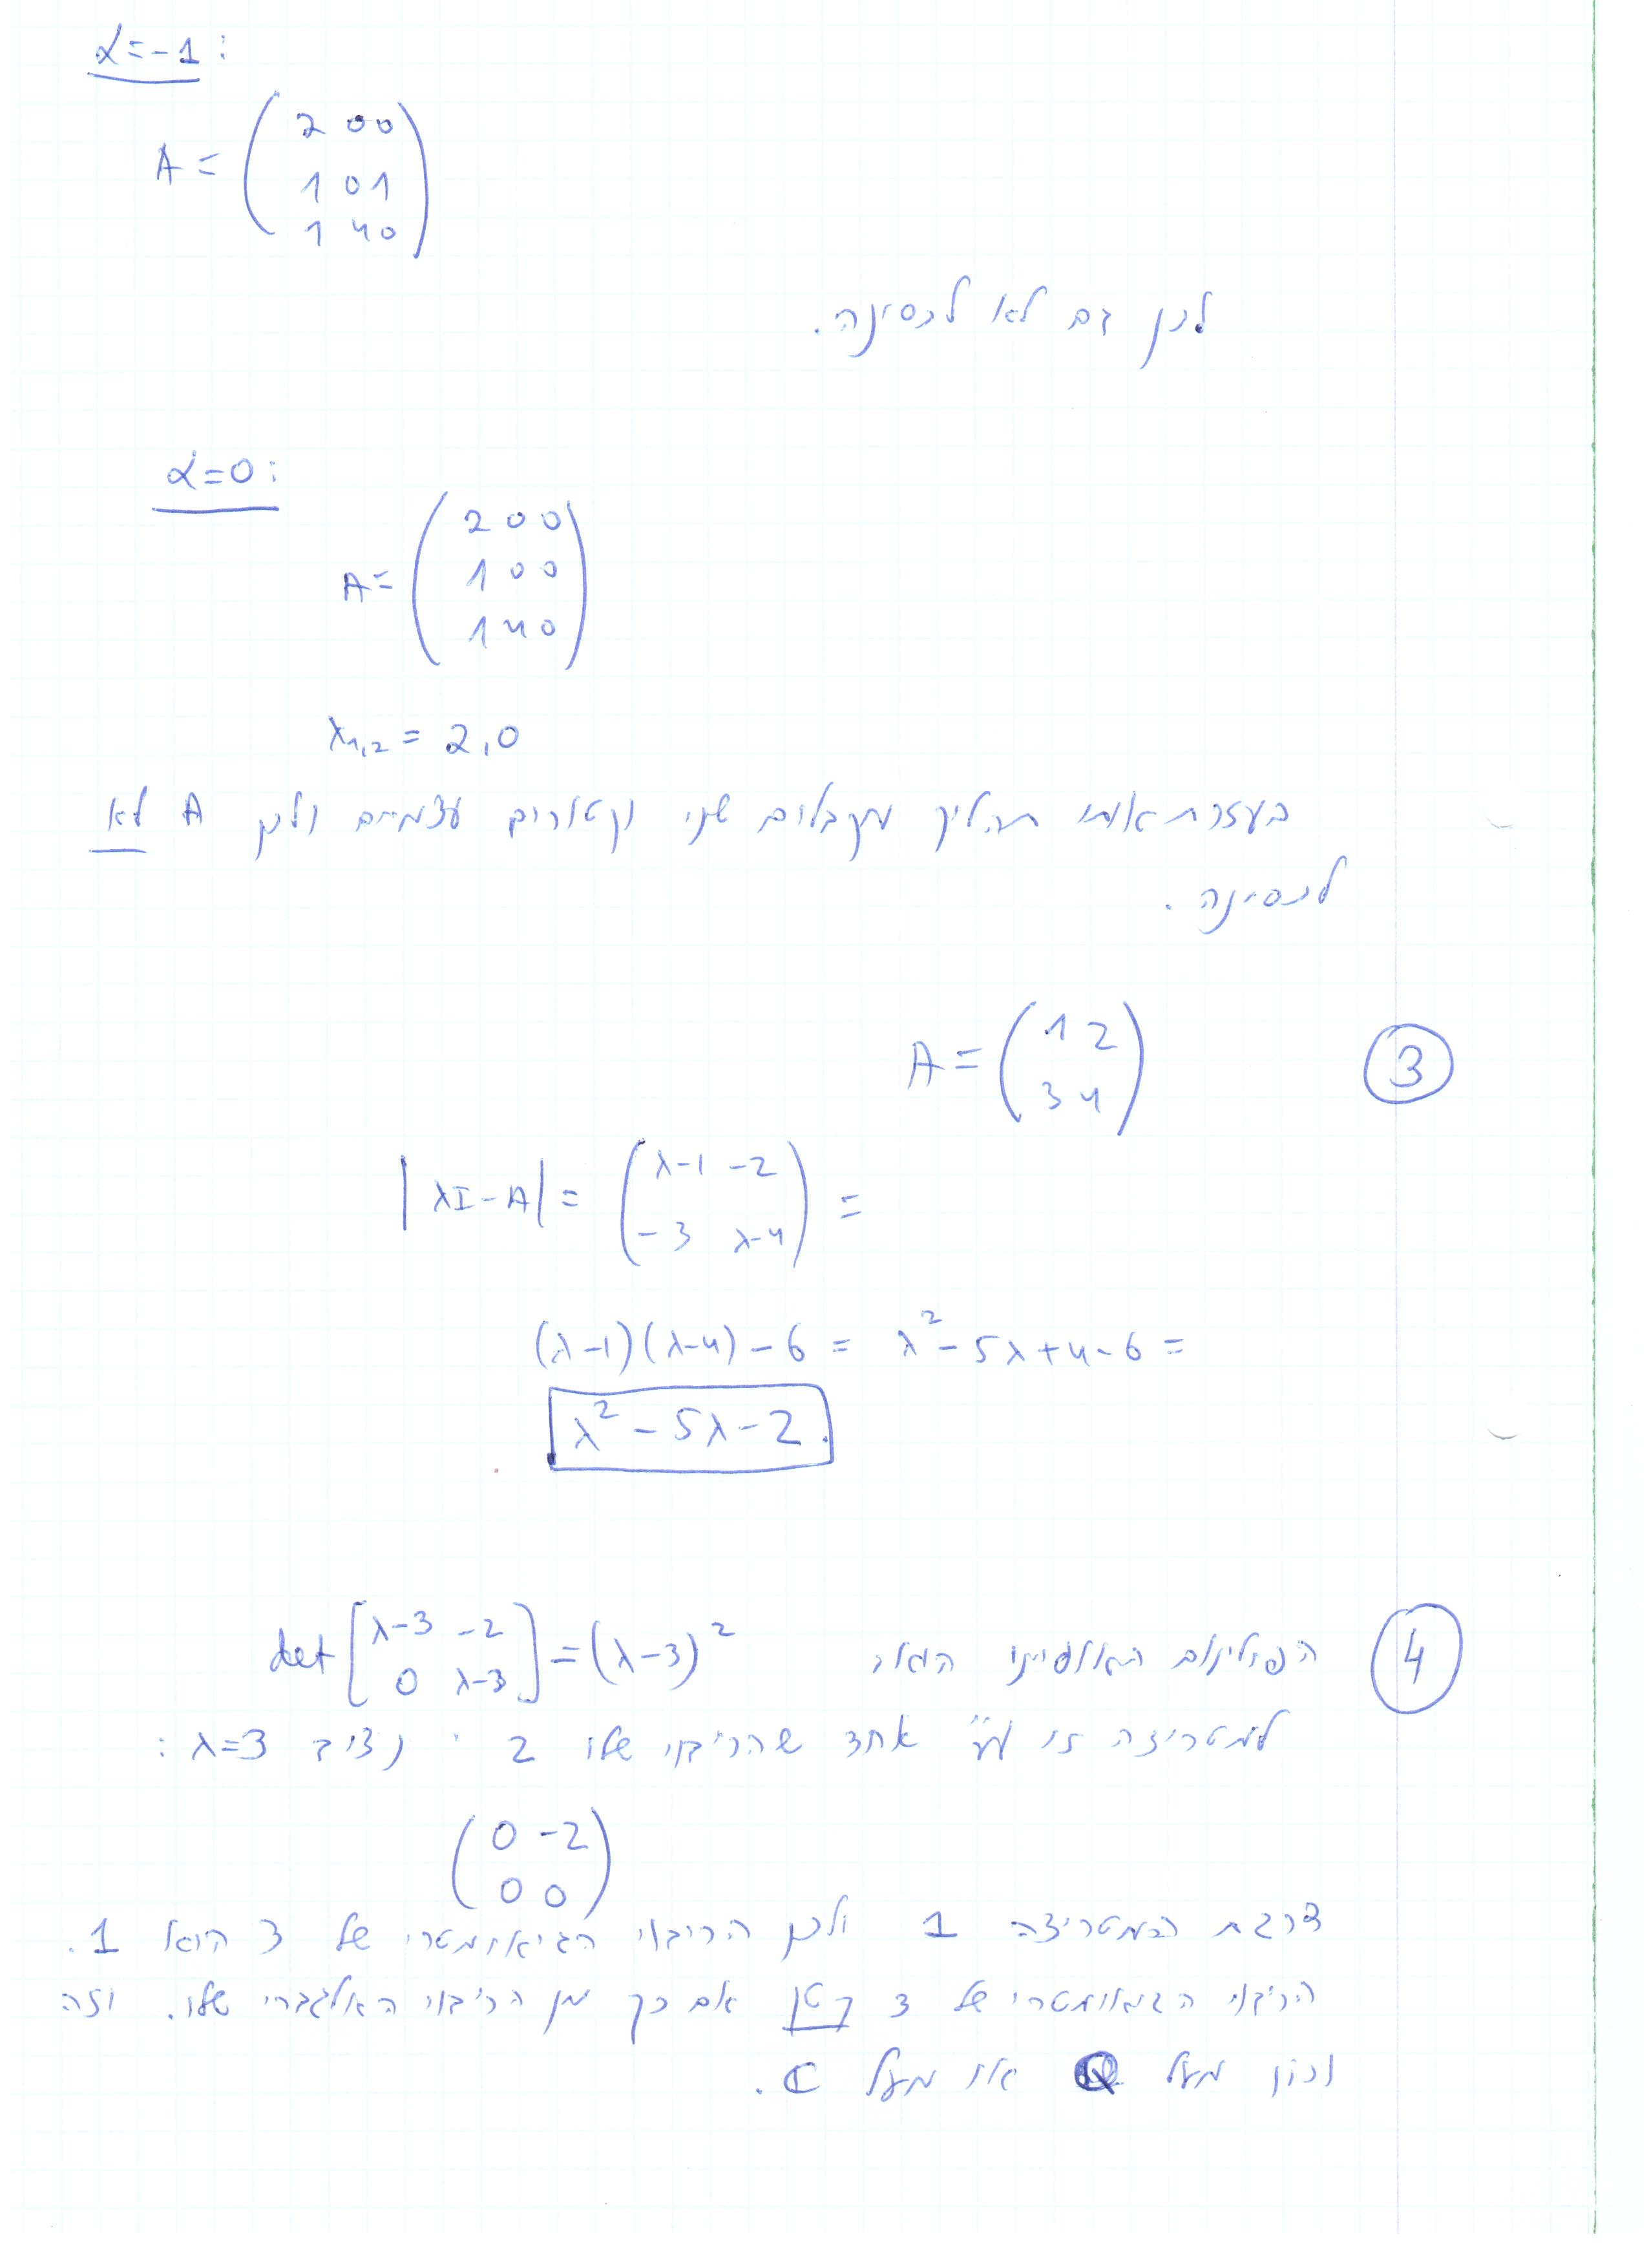 α=-1:
A = ( 2 0 0
1 0 1
1 4 0 )
לכן גם לא לכסינה.
α=0:
A = ( 2 0 0
1 0 0
1 4 0 )
λ₁,₂ = 2,0
בעזרת אותו תהליך מקבלים שני וקטורים עצמיים ולכן A לא
לכסינה.
③ A = ( 1 2
3 4 )
|λI-A| = ( λ-1 -2
-3 λ-4 ) =
(λ-1)(λ-4) - 6 = λ² - 5λ + 4 - 6 =
λ² - 5λ - 2.
④ הפולינום האופייני הוא: det [ λ-3 -2
0 λ-3 ] = (λ-3)²
למטריצה זו ע"ע אחד שהריבוי שלו 2. נציב λ=3:
( 0 -2
0 0 )
דרגת המטריצה 1 ולכן הריבוי הגיאומטרי של 3 הוא 1.
הריבוי הגיאומטרי של 3 קטן אם כך מן הריבוי האלגברי שלו. וזה
נכון מעל Q או מעל C.